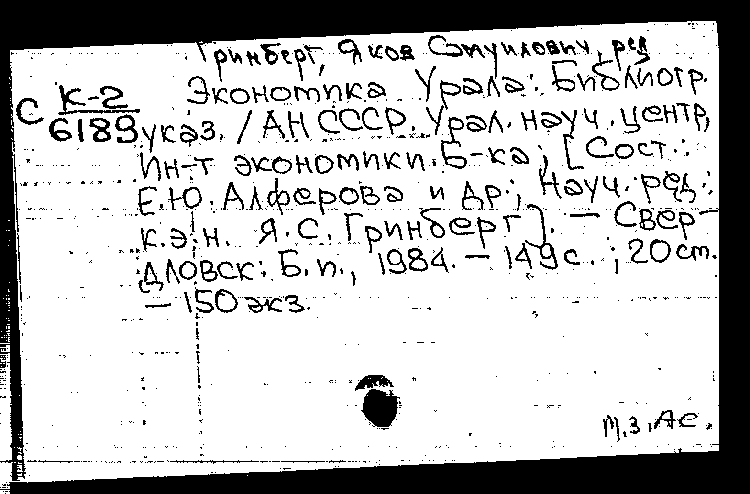 Гринберг, Яков Самуилович, ред
Экономика Урала: Библиогр.
С К-2
6189
указ. / АН СССР. Урал. науч. центр,
Ин-т экономики. Б-ка; [Сост.:
Е.Ю. Алферова и др.; Науч. ред.:
к.э.н. Я.С. Гринберг]. — Свер-
дловск: Б.и., 1984. — 149с. ; 20см.
— 150 экз.
М.З. Ас.